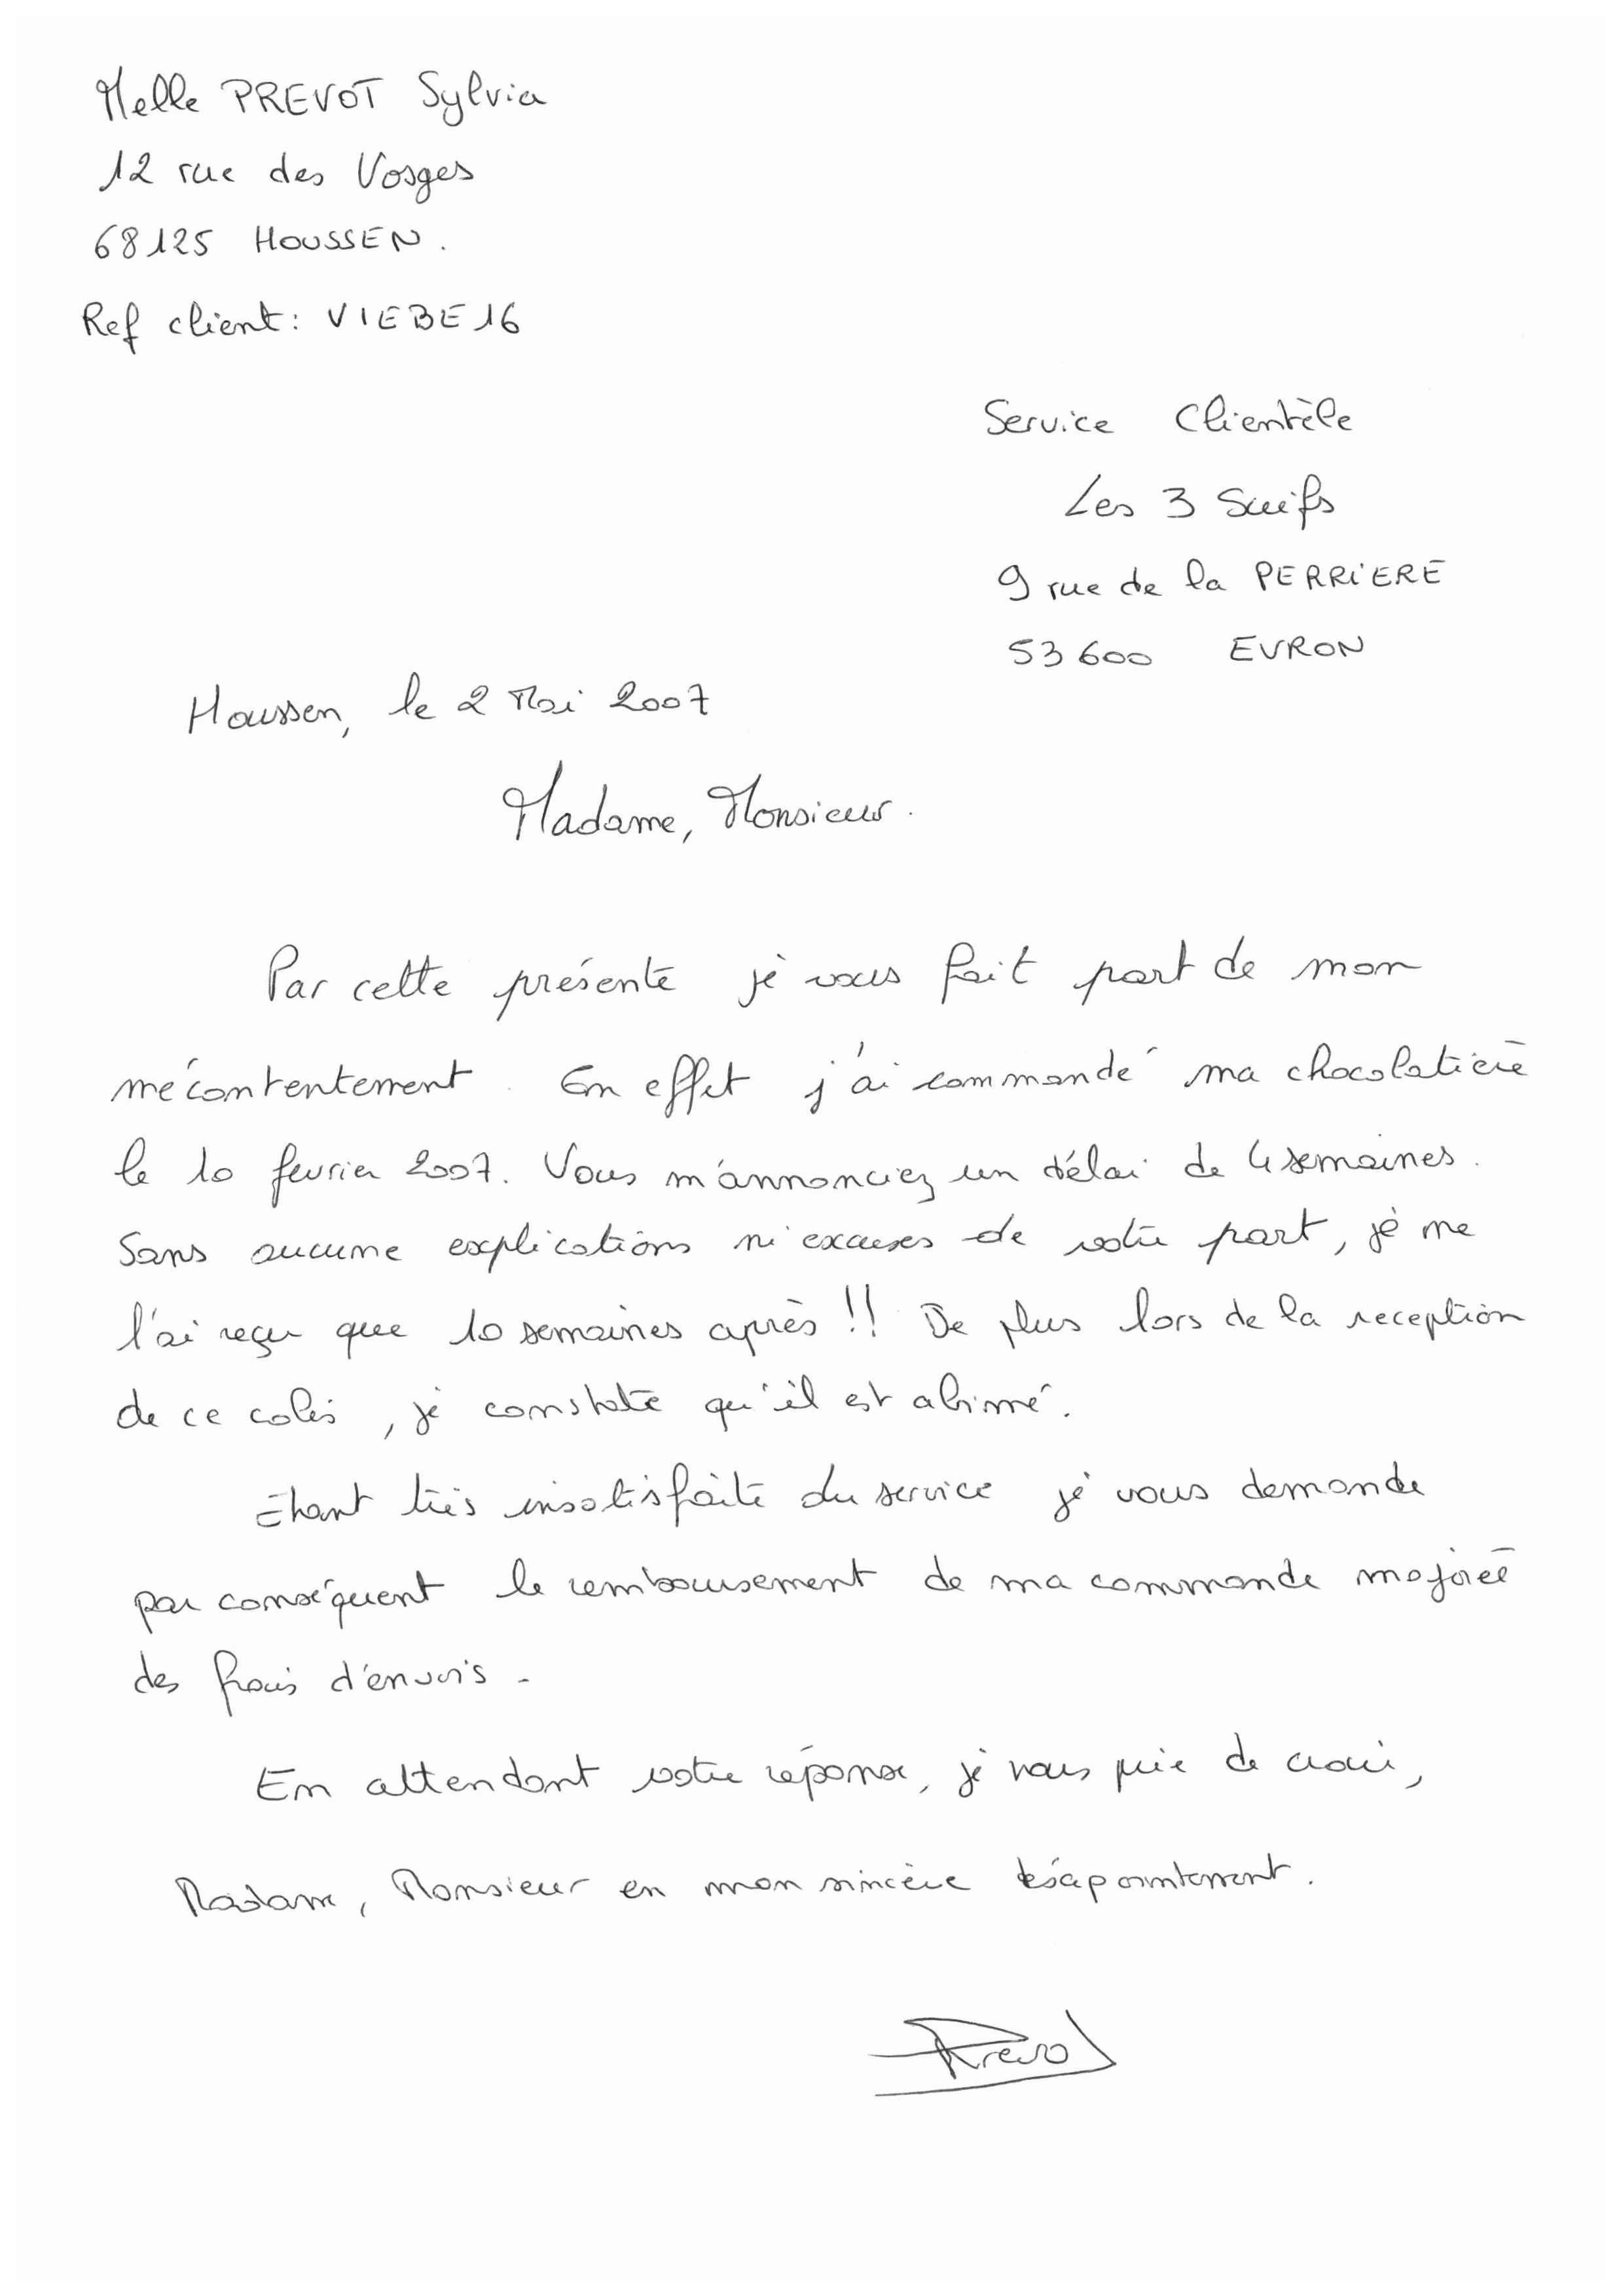 Melle PREVOT Sylvia
12 rue des Vosges
68125 HOUSSEN.
Ref client: VIEBE16
Service Clientèle
Les 3 Suifs
9 rue de la PERRIERE
53600 EVRON
Houssen, le 2 Mai 2007
Madame, Monsieur.
Par cette présente je vous fait part de mon
mécontentement. En effet j'ai commandé ma chocolatière
le 10 fevrier 2007. Vous m'annonciez un délai de 4 semaines.
Sans aucune explications ni excuses de votre part, je ne
l'ai reçu que 10 semaines après !! De plus lors de la reception
de ce colis, je constate qu'il est abimé.
Etant très insatisfaite du service je vous demande
par conséquent le remboursement de ma commande majorée
des frais d'envois.
En attendant votre réponse, je vous prie de croire,
Madame, Monsieur en mon sincère désapointement.
Prevot